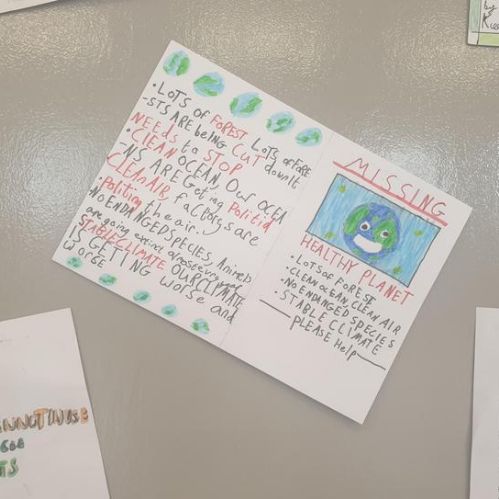 • LOTS OF FOREST LOTS OF FORE
-STS ARE being CUT down It
NEEDS to STOP
• CLEAN OCEAN, OUR OCEA
-NS ARE Geting Politid
CLEAN AIR, factorys are
• Politing the air.
NO ENDANGED SPECIES, Animels
are going extinct almost every
STABLE CLIMATE OUR CLIMATE
IS GETTING WORSE and
worse
MISSING
HEALTHY PLANET
• LOTS of FORESE
• CLEAN OCEAN, CLEAN AIR
• NO ENDANGED SPECIES
• STABLE CLIMATE
PLEASE Help
by